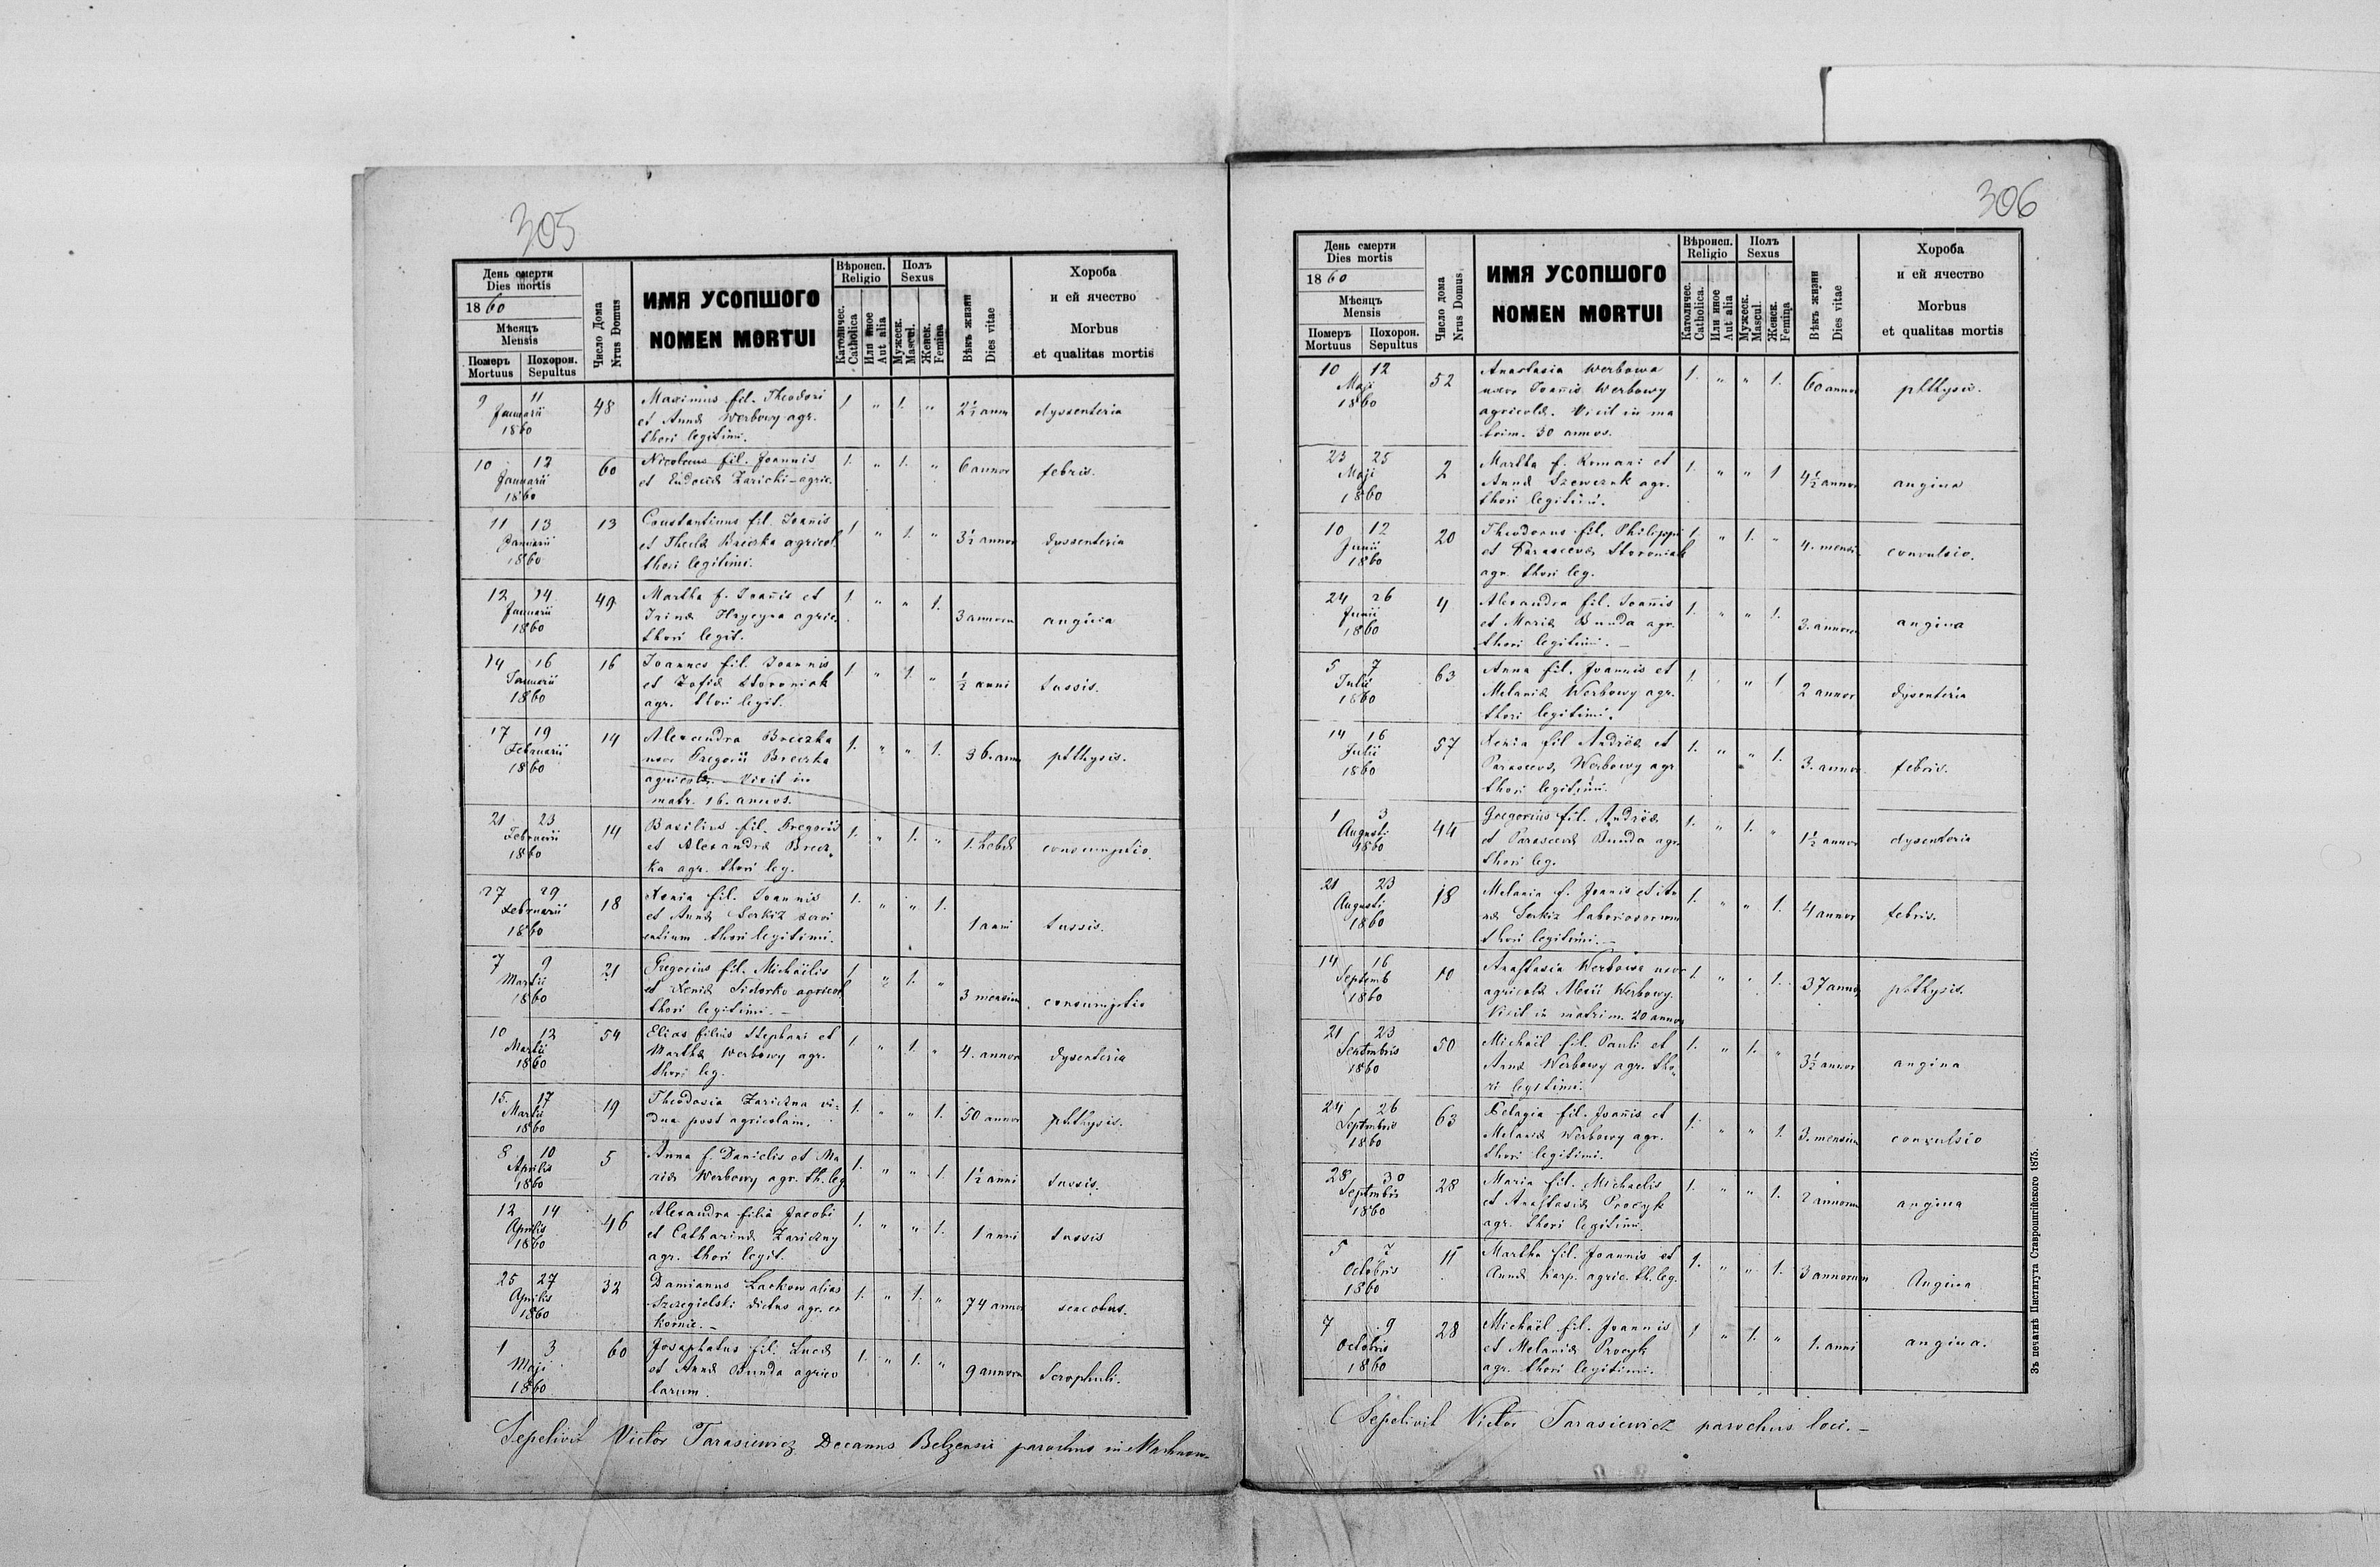 305
День смерти
Dies mortis
1860
Мѣсяцъ
Mensis
Померъ Похорон.
Mortuus Sepultus
Число Дома
Nrus Domus
ИМЯ УСОПШОГО
NOMEN MORTUI
Вѣроисп.
Religio
Католичес.
Catholica
Или иное
Aut alia
Полъ
Sexus
Мужеск.
Mascul.
Женск.
Femina
Вѣкъ жизни
Dies vitae
Хороба
и ей ячество
Morbus
et qualitas mortis
9 11 48 Maximus fil. Theodori 1 " 1. " 2½ annor dyssenteria
Januarii et Annæ Werbowy agr.
1860 thori legitimi.
10 12 60 Nicolaus fil. Joannis 1. " 1. " 6 annor febris.
Januarii et Eudociæ Zaricki - agric.
1860
11 13 13 Constantinus fil. Joañis 1 " 1. " 3½ annor dyssenteria
Januarii et Theclæ Breczka agricol.
1860 thori legitimi.
12 14 49 Martha f. Joañis et 1. " " 1. 3 annorum angina
Januarii Irinæ agric.
1860 thori legit.
14 16 16 Joannes fil. Joannis 1 " 1. " ½ anni tussis.
Januarii et Zofiæ Storoniak
1860 agr. thori legit.
17 19 14 Alexandra Breczka 1. " " 1. 36. anno phthysis.
Februarii uxor Gregorii Breczka
1860 agricolæ. Vixit in
matr. 16. annos.
21 23 14 Basilius fil. Gregorii 1. " 1. " 1. hebd consumptio.
Februarii et Alexandræ Brecz,,
1860 ka agr. thori leg.
27 29 18 Xenia fil. Joannis 1. " " 1. 1 anni tussis.
Februarii et Annæ Serkiz servi
1860 entium thori legitimi.
7 9 21 Gregorius fil. Michaëlis 1 " 1. " 3 mensium consumptio
Martii et Xeniæ Sidorko agricol
1860 thori legitimi. -
10 12 54 Elias filius Stephani et 1 " 1. " 4. annor dysenteria
Martii Marthæ Werbowy agr.
1860 thori leg.
15. 17 19 Theodosia Zariczna vi- 1. " " 1. 50 annor phthysis.
Martii dua post agricolam.
1860
8 10 5 Anna f. Danielis et Ma 1. " " 1. 1½ anni tussis.
Aprilis riæ Werbowy agr. th. leg.
1860
12 14 46 Alexandra filia Jacobi 1. " " 1. 1 anni tussis
Aprilis et Catharinæ Zariczny
1860 agr. thori legit.
25 27 32 Damianus Lackow alias 1. " 1. " 74 annor senectus.
Aprilis Szczegielski dictus agr. ex
1860 Kornie. -
1 3 60 Josaphatus fil. Lucæ 1. " 1. " 9 annorum Scrophuli.
Maji et Annæ Bunda agrico
1860 larum.
Sepelivit Victor Tarasiewicz Decanus Belzensis parochus in Machnow.
306
День смерти
Dies mortis
1860
Мѣсяцъ
Mensis
Померъ Похорон.
Mortuus Sepultus
Число дома
Nrus Domus
ИМЯ УСОПШОГО
NOMEN MORTUI
Вѣроисп.
Religio
Католичес.
Catholica.
Или иное
Aut alia
Полъ
Sexus
Мужеск.
Mascul.
Женск.
Femina
Вѣкъ жизни
Dies vitae
Хороба
и ей ячество
Morbus
et qualitas mortis
10 12 52 Anastasia Werbowa 1. " " 1. 60 annor phthysis.
Maji uxor Joañis Werbowy
1860 agricolæ. Vixit in ma
trim. 30 annos.
23 25 2 Martha f. Romani et 1. " " 1 4½ annor angina
Maji Annæ Szewczuk agr.
1860 thori legitimi.
10 12 20 Theodorus fil. Philippi 1. " 1. " 4. mensi convulsio.
Junii et Parascevæ Storoniak
1860 agr. thori leg.
24 26 4 Alexandra fil. Joañis 1. " " 1. 3. annorum angina
Junii et Mariæ Bunda agr.
1860 thori legitimi. -
5 7 63 Anna fil. Joannis et 1. " 1 2 annor dysenteria
Julii Melaniæ Werbowy agr.
1860 thori legitimi.
14 16 57 Xenia fil Andreæ et 1. " " 1. 3. annor febris.
Julii Parascevæ Werbowy agr
1860 thori legitimi.
1 3 44 Gregorius fil. Andreæ 1. " 1. " 1½ annor dysenteria
Augusti et Parascevæ Bunda agr.
1860 thori leg.
21 23 18 Melania f. Joannis et An 1. " " 1. 4 annor febris.
Augusti næ Serkiz laboriosorum
1860 thori legitimi. -
14 16 10 Anastasia Werbowa uxor 1. " " 1. 37 annor phthysis.
Septemb agricolæ Alexii Werbowy.
1860 Vixit in matrim. 20 annos
21 23 50 Michaël fil. Pauli et 1. " 1. " 3½ annor angina
Septembris Annæ Werbowy agr. tho,,
1860 ri legitimi.
24 26 63 Pelagia fil. Joañis et 1. " " 1. 3. mensium convulsio
Septembris Melaniæ Werbowy agr.
1860 thori legitimi.
28 30 28 Maria fil. Michaelis 1. " " 1. 2 annorum angina
Septembris et Anastasiæ Procyk
1860 agr. thori legitimi.
5 7 11 Martha fil. Joannis et 1. " " 1. 3 annorum Angina
Octobris Annæ Karp. agric. th. leg.
1860
7 9 28 Michaël fil. Joannis 1 " 1. " 1. anni angina.
Octobris et Melaniæ Procyk
1860 agr. thori legitimi.
Sepelivit Victor Tarasiewicz parochus loci. -
Зъ печатнѣ Института Ставропигійского 1875.